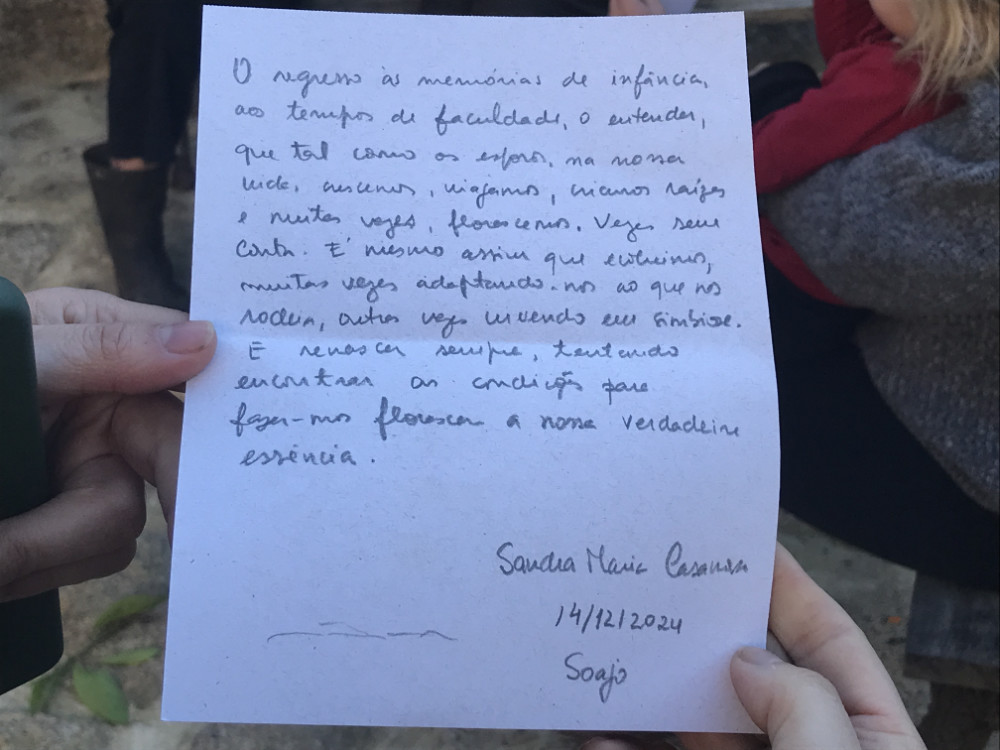 O regresso às memórias de infância,
aos tempos de faculdade, o entender,
que tal como os esporos, na nossa
vida, crescemos, viajamos, criamos raízes
e muitas vezes, florescemos. Vezes sem
conta. E mesmo assim que evoluimos,
muitas vezes adaptando-nos ao que nos
rodeia, outras vezes vivendo em simbiose.
E renascer sempre, tentando
encontrar as condições para
fazer-mos florescer a nossa verdadeira
essência.
Sandra Maria Casanova
14/12/2024
Soajo